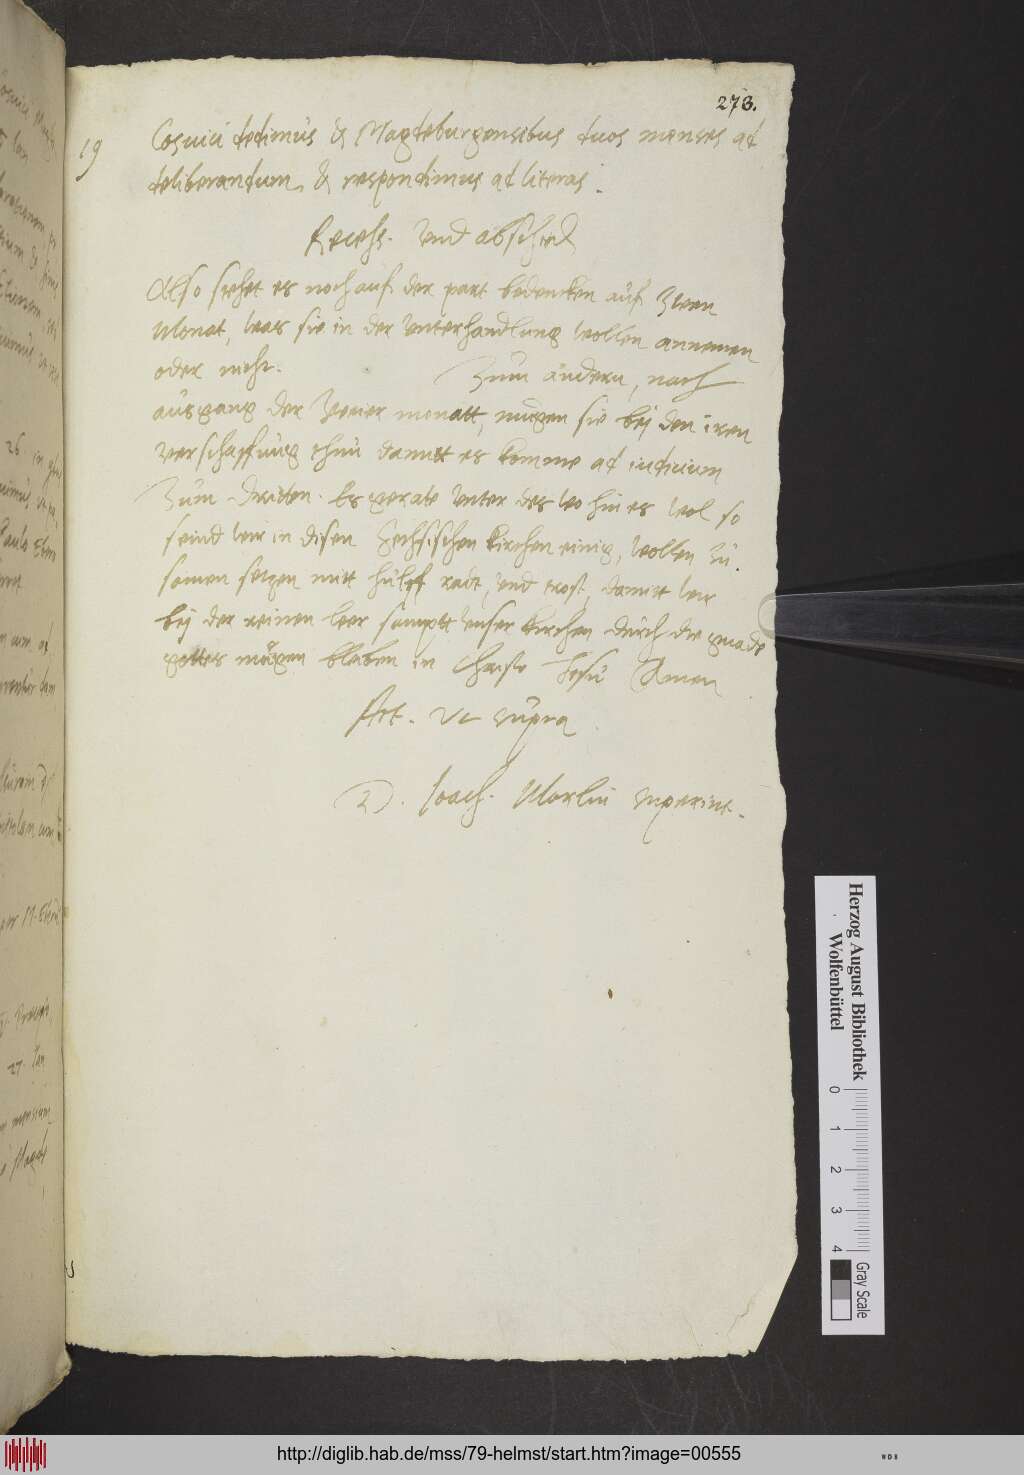 273.
19 Coswici dedimus & Magdeburgensibus duos menses ad
deliberandum, & respondimus ad literas.
Recess. Vnd abschied
Also stehet es noch auf der part bedencken auf Zwen
Monat, was sie in der Vnterhandlung wollen annemen
oder nicht. Zum andern, nach
ausgang der Zweier monatt, mugen sie bej den iren
verschaffung thun damitt es komme ad iudicium
Zum dritten. Es gerate Vnter des wo hin es wol so
seind wir in disen Sechsischen kirchen einig, wollen zu
samen setzen mitt hulff radt, vnd trost, damitt wir
bej der reinen leer sampt vnser kirchen durch die gnade
gottes mogen bleiben in Christo Jesu Amen
Act. vt supra
D. Joach. Morlin superint.
Herzog August Bibliothek
Wolfenbüttel
0 1 2 3 4
Gray Scale
http://diglib.hab.de/mss/79-helmst/start.htm?image=00555